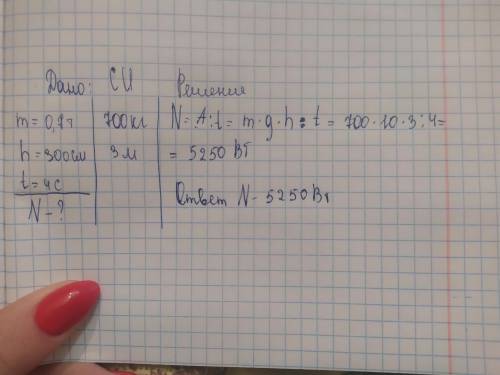 Дано: СИ Решение
m = 0,7т 700кг N = A:t = m·g·h:t = 700·10·3:4=
h = 300см 3м = 5250 Вт
t = 4с
N - ? Ответ N - 5250 Вт